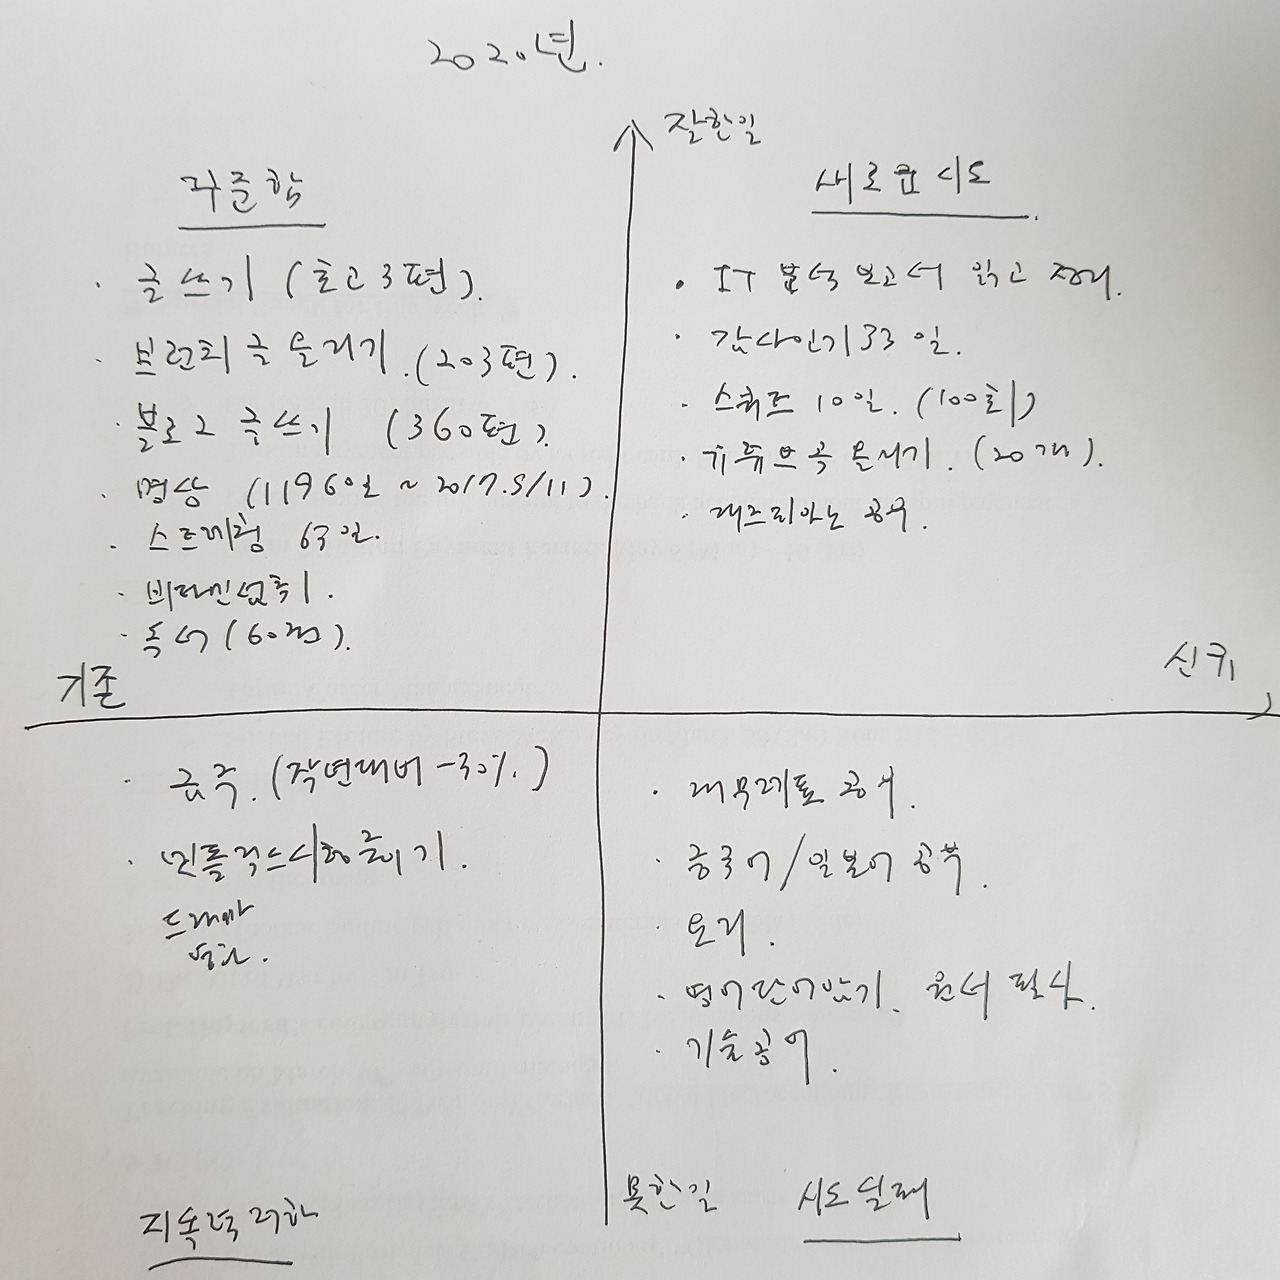 2020년.
잘한일
꾸준함
새로운 시도
· 글쓰기 (초고 3편).
· 브런치 글 올리기. (203편).
· 블로그 글쓰기 (360편).
· 명상 (1196일 ~ 2017.9/11).
· 스트레칭 63일.
· 비타민섭취.
· 독서 (60권).
· IT 분석 보고서 읽고 정리.
· 감사일기 33일.
· 스쿼트 10일. (100회)
· 유튜브 곡 올리기. (20개).
· 재즈피아노 공부.
기존
신규
· 금주. (작년대비 -30%.)
· 넷플릭스 시청 줄이기.
드라마
영화.
· 재무제표 공부.
· 중국어/일본어 공부.
· 요리.
· 영어단어암기. 원서 필사.
· 기술공부.
못한일
시도 실패
지속력 약함